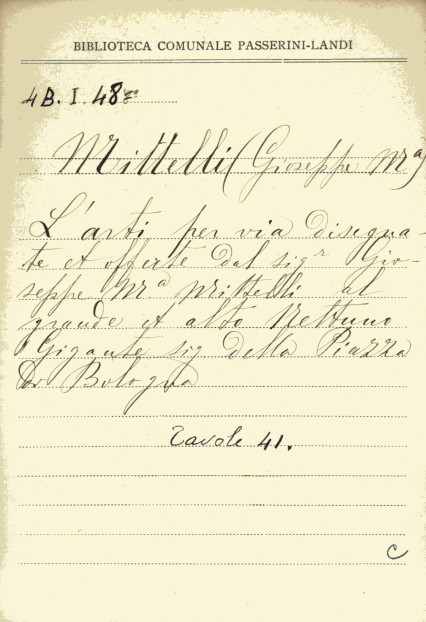 BIBLIOTECA COMUNALE PASSERINI-LANDI
4B. I. 48
Mittelli (Gioseppe Mª)
L'arti per via disegna-
te et offerte dal sigr Gio-
seppe Mª Mittelli al
grande et alto Nettuno
Gigante sig della Piazza
Bologna
Tavole 41.
C